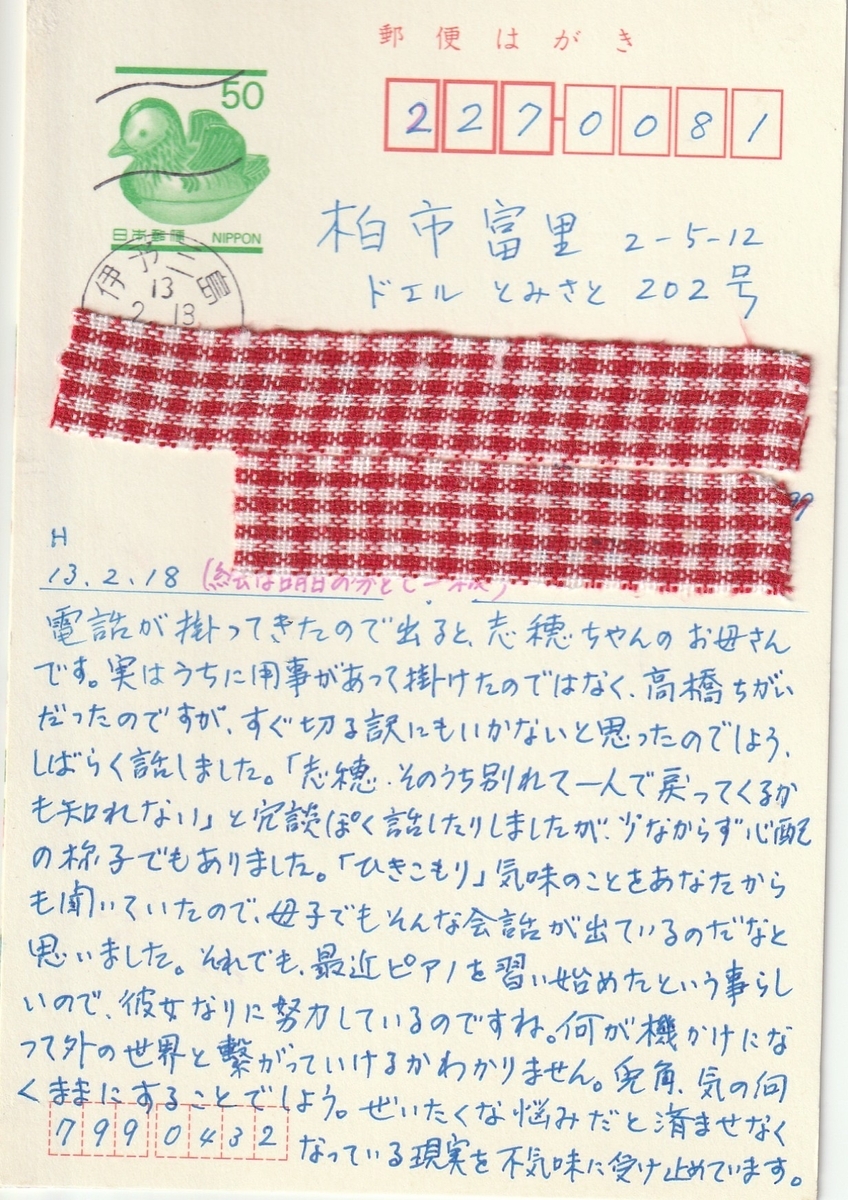 郵便はがき
50
日本郵便 NIPPON
227-0081
伊予三島
13
2 13
柏市富里 2-5-12
ドエル とみさと 202号
H
13.2.18 (絵は明日の分として一枚)
電話が掛ってきたので出ると、志穂ちゃんのお母さん
です。実はうちに用事があって掛けたのではなく、高橋ちがい
だったのですが、すぐ切る訳にもいかないと思ったのでしよう、
しばらく話しました。「志穂、そのうち別れて一人で戻ってくるか
も知れない」と冗談ぽく話したりしましたが、少なからず心配
の様子でもありました。「ひきこもり」気味のことをあなたから
も聞いていたので、母子でもそんな会話が出ているのだなと
思いました。それでも、最近ピアノを習い始めたという事らし
いので、彼女なりに努力しているのですね。何が機かけにな
って外の世界と繋がっていけるかわかりません。兎角、気の向
くままにすることでしよう。ぜいたくな悩みだと済ませなく
なっている現実を不気味に受け止めています。
7990432